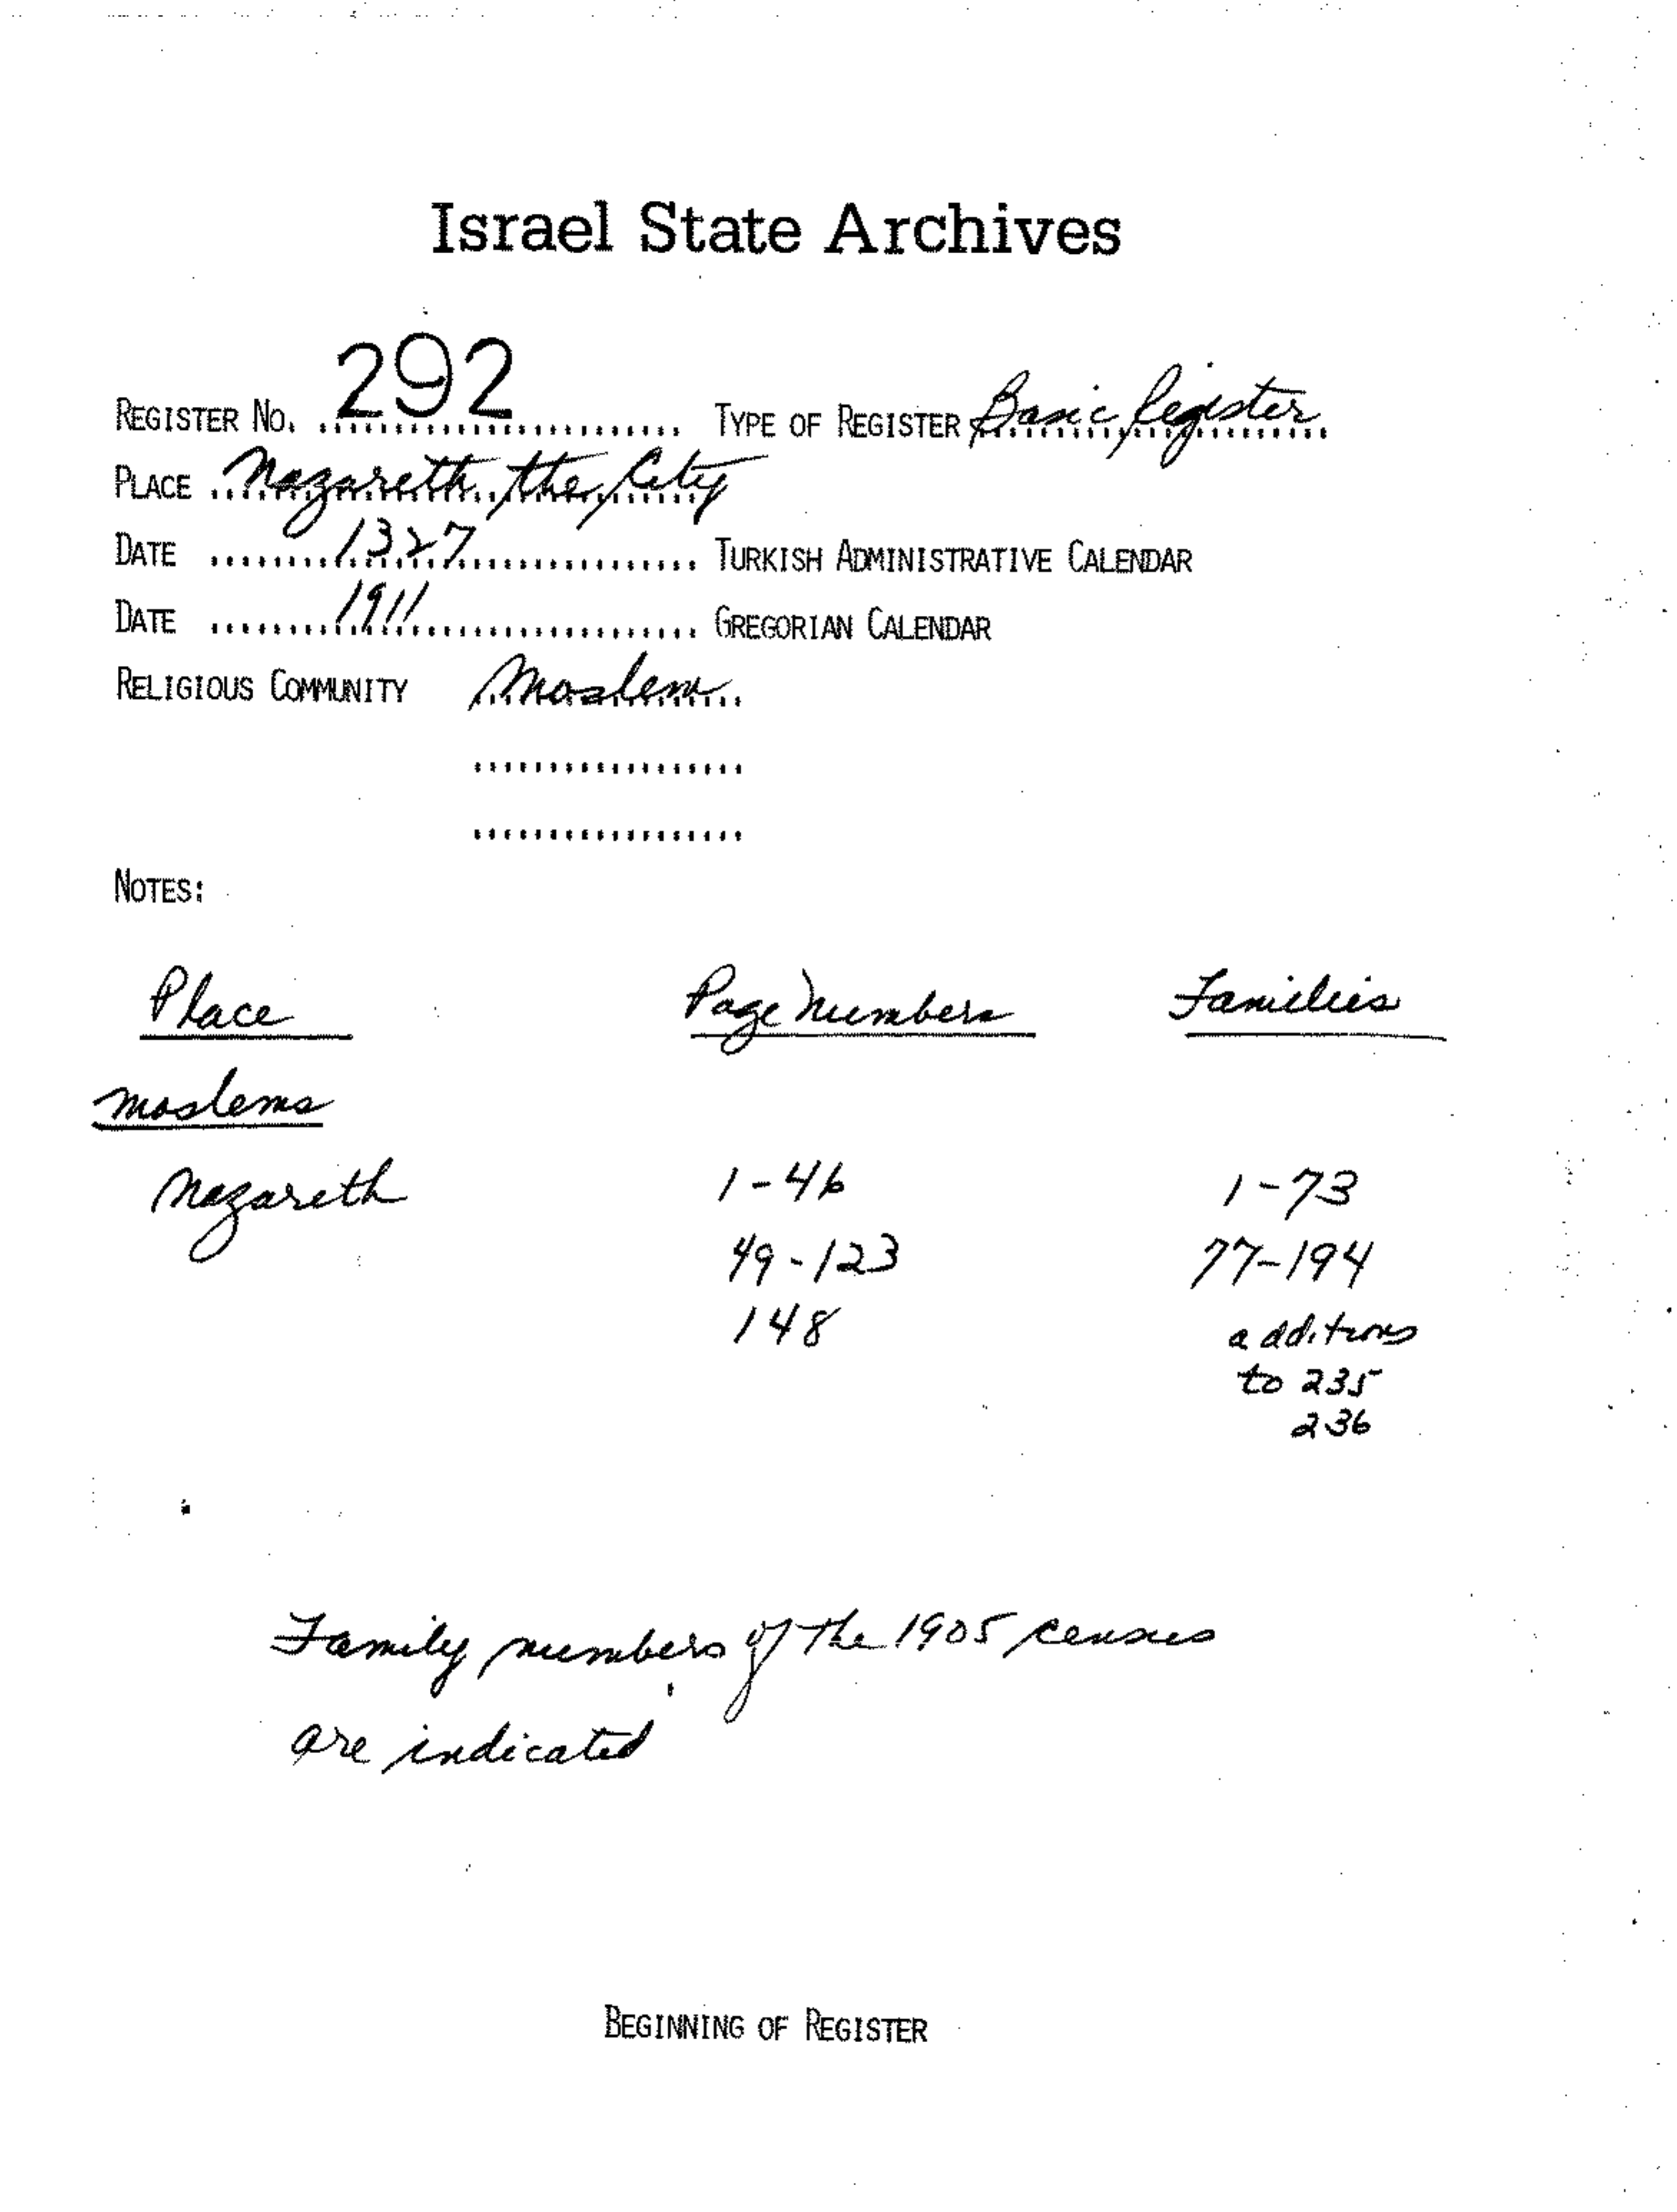 Israel State Archives
REGISTER NO. 292 TYPE OF REGISTER Basic Register
PLACE Nazareth, the City
DATE 1327 TURKISH ADMINISTRATIVE CALENDAR
DATE 1911 GREGORIAN CALENDAR
RELIGIOUS COMMUNITY Moslem
NOTES:
Place Page Numbers Families
Moslems
Nazareth 1-46 1-73
49-123 77-194
148 additions
to 235
236
Family numbers of the 1905 census
are indicated
BEGINNING OF REGISTER